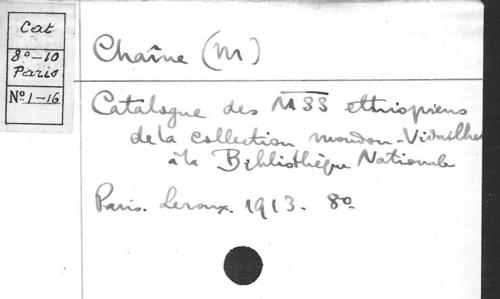 Cat
8°-10
Paris
Nº 1-16
Chaîne (M)
Catalogue des MSS ethiopiens
de la collection Mondon-Vidailhet
à la Bibliothèque Nationale
Paris. Leroux. 1913. 8º